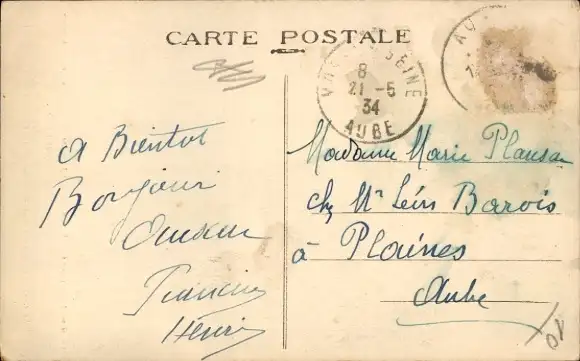 CARTE POSTALE
SEINE
8
21 - 5
34
AUBE
AU
A Bientot
Bonjour
Henri
Madame Marie Plausan
chez Mr Barois
à Plaines
Aube